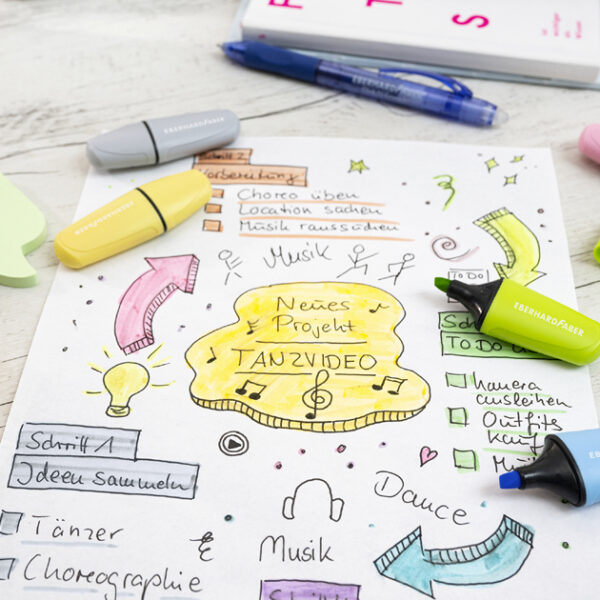 F T S
EBERHARD FABER
EBERHARD FABER
EBERHARD FABER
Schritt 2
Vorbereitung
Choreo üben
Location suchen
Musik raussuchen
Musik
TO DO
Neues
Projekt
TANZVIDEO
EBERHARD FABER
TO DO
Kamera
ausleihen
Outfits
kauf
Schritt 1
Ideen sammeln
Dance
Tänzer
Choreographie
Musik